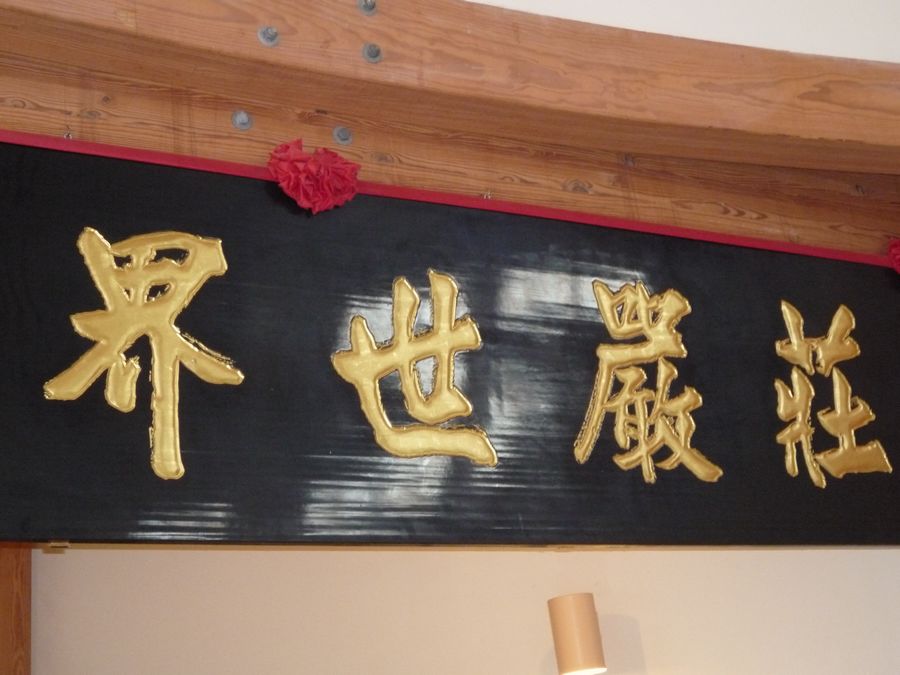 莊嚴世界